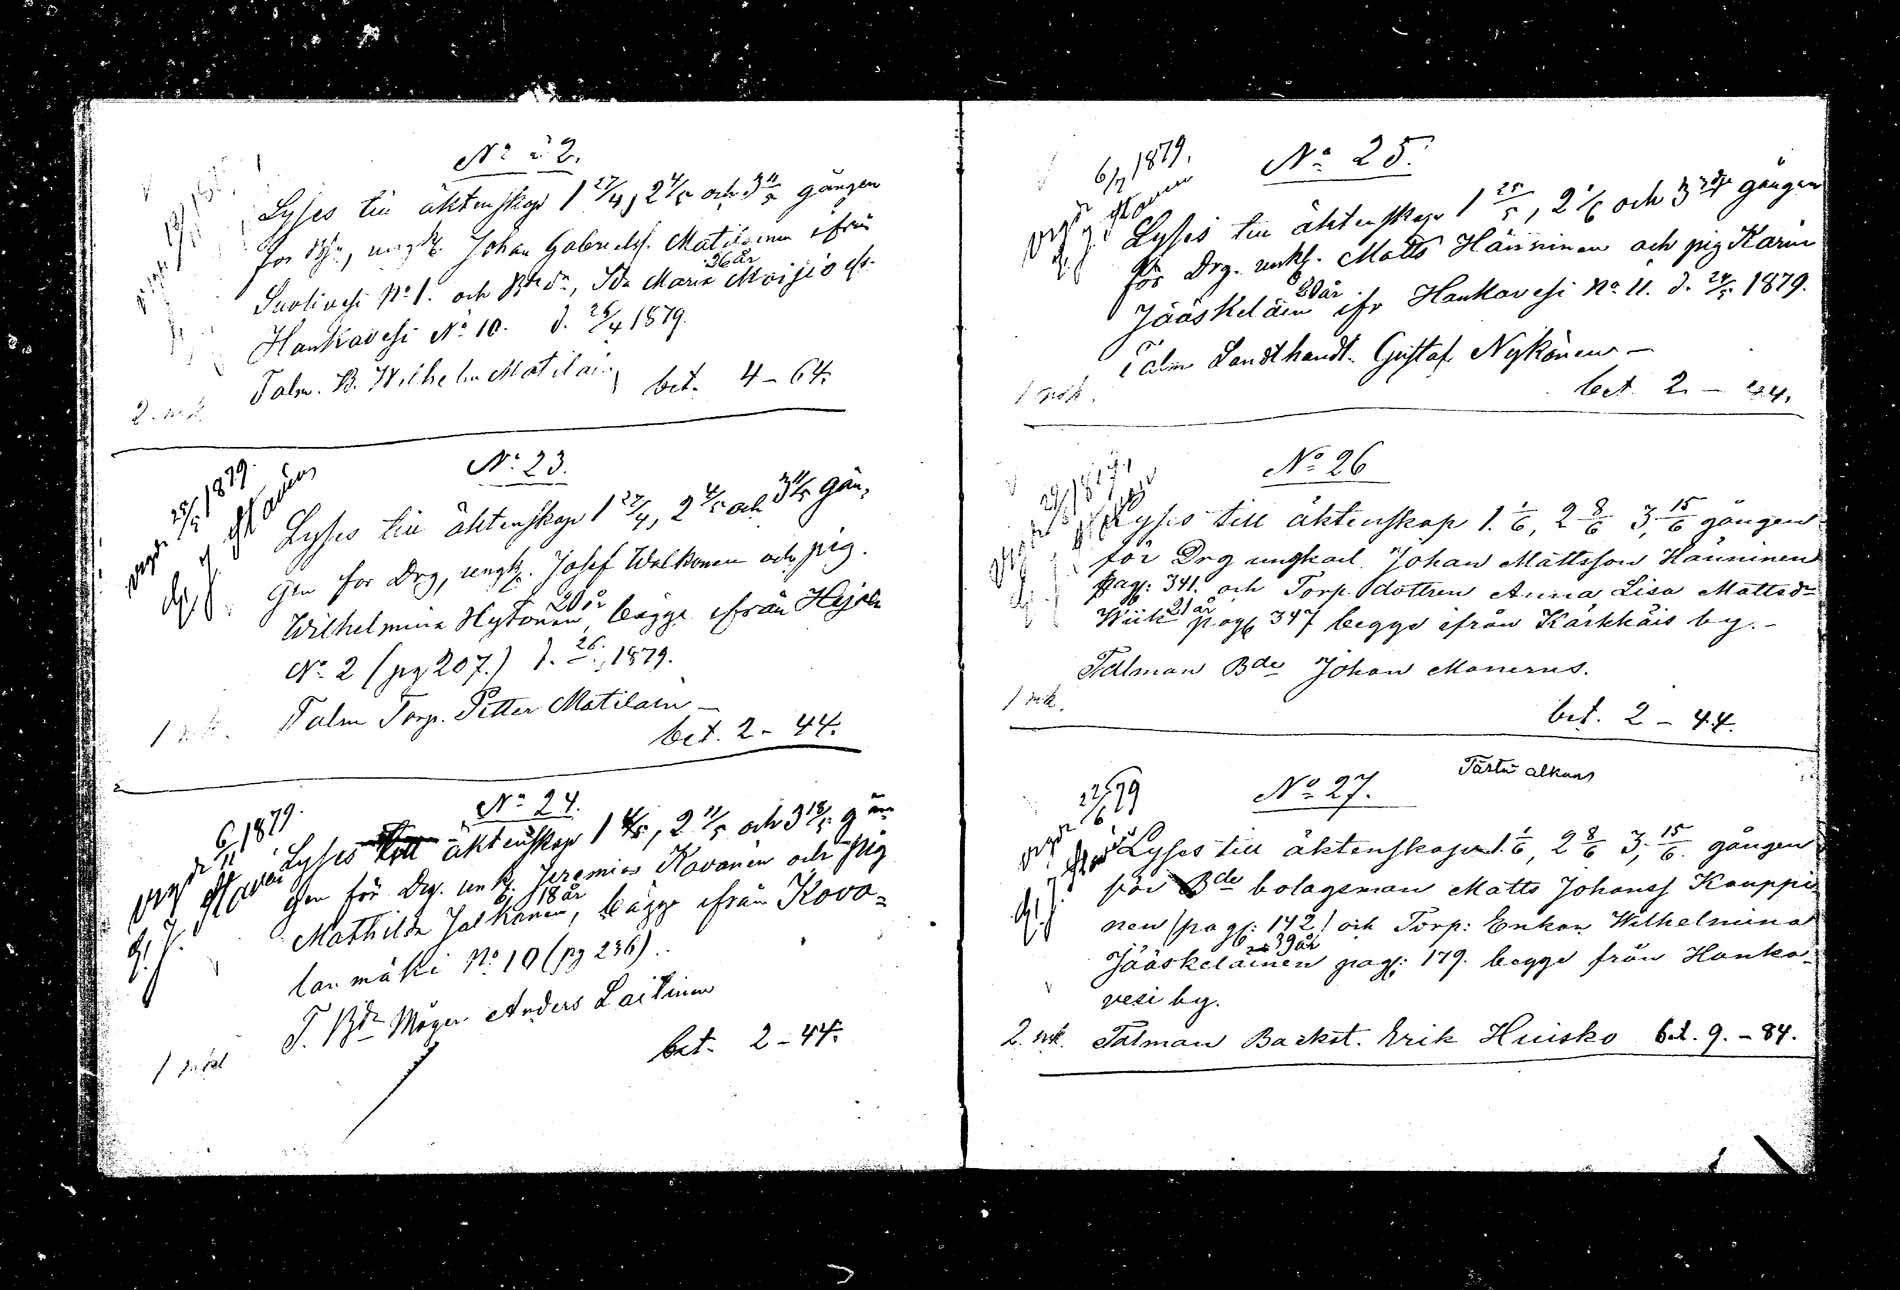 No 22.
Lyses till äktenskap 1 27/4, 2 4/5 och 3 11/5 gången
för Bde, ungk. Johan Gabrielss. Matilainen ifrån
26 år
Suolivesi No 1. och Bdedr, Ida Maria Moisio ifr.
Hankavesi No 10. d. 26/4 1879.
Talm. B. Wilhelm Matilain
2. mk. bet. 4 - 64.
No 23.
vigde 25/5 1879.
Lyses till äktenskap 1 27/4, 2 4/5 och 3 11/5 gån-
gen för Drg, ungk. Josef Walkonen och pig.
20 år
Wilhelmina Hytönen, bägge ifrån
No 2 (pg 207.) d. 26. 1879.
Talm Torp. Petter Matilain -
1 mk. bet. 2 - 44.
No 24.
vigde 1879.
Lyses till äktenskap 1 4/5, 2 11/5 och 3 18/5 gån-
gen för Drg. unk. Jeremias Kovanen och pig
18 år
Mathilda Jalkanen, bägge ifrån Kova-
lanmäki No 10 (pg 236).
T. Bde Måger Anders Laitinen
1 mk bet. 2 - 44.
No 25.
vigde 6/7 1879.
Lyses till äktenskap 1 25/5, 2 1/6 och 3dje gången
för Drg. unk. Matts Hänninen och pig Karin
20 år
Jääskeläin ifr Hankavesi No 11. d. 24/5 1879.
Talm Landthandt. Gustaf Nykänen -
1 mk. bet. 2 - 44.
No 26
Lyses till äktenskap 1. 1/6, 2 8/6 3, 15/6 gången
för Drg ungkarl Johan Mattsson Hänninen
pag: 341. och Torp. dottren Anna Lisa Mattsdr
21 år
Wiik pag 347 begge ifrån Kärkkäis by. -
Talman Bde Johan Manerus.
1 mk. bet. 2 - 44.
No 27. Tästä alkaas
vigde 22/6 79
Lyses till äktenskap 1. 1/6, 2 8/6 3, 15/6. gången
för Bde bolagsman Matts Johanss Kauppi-
nen (pag: 142) och Torp: Enkan Wilhelmina
39 år
Jääskeläinen pag: 179. begge från Hanka-
vesi by.
2. mk. Talman Backst. Erik Huisko bet. 9. - 84.